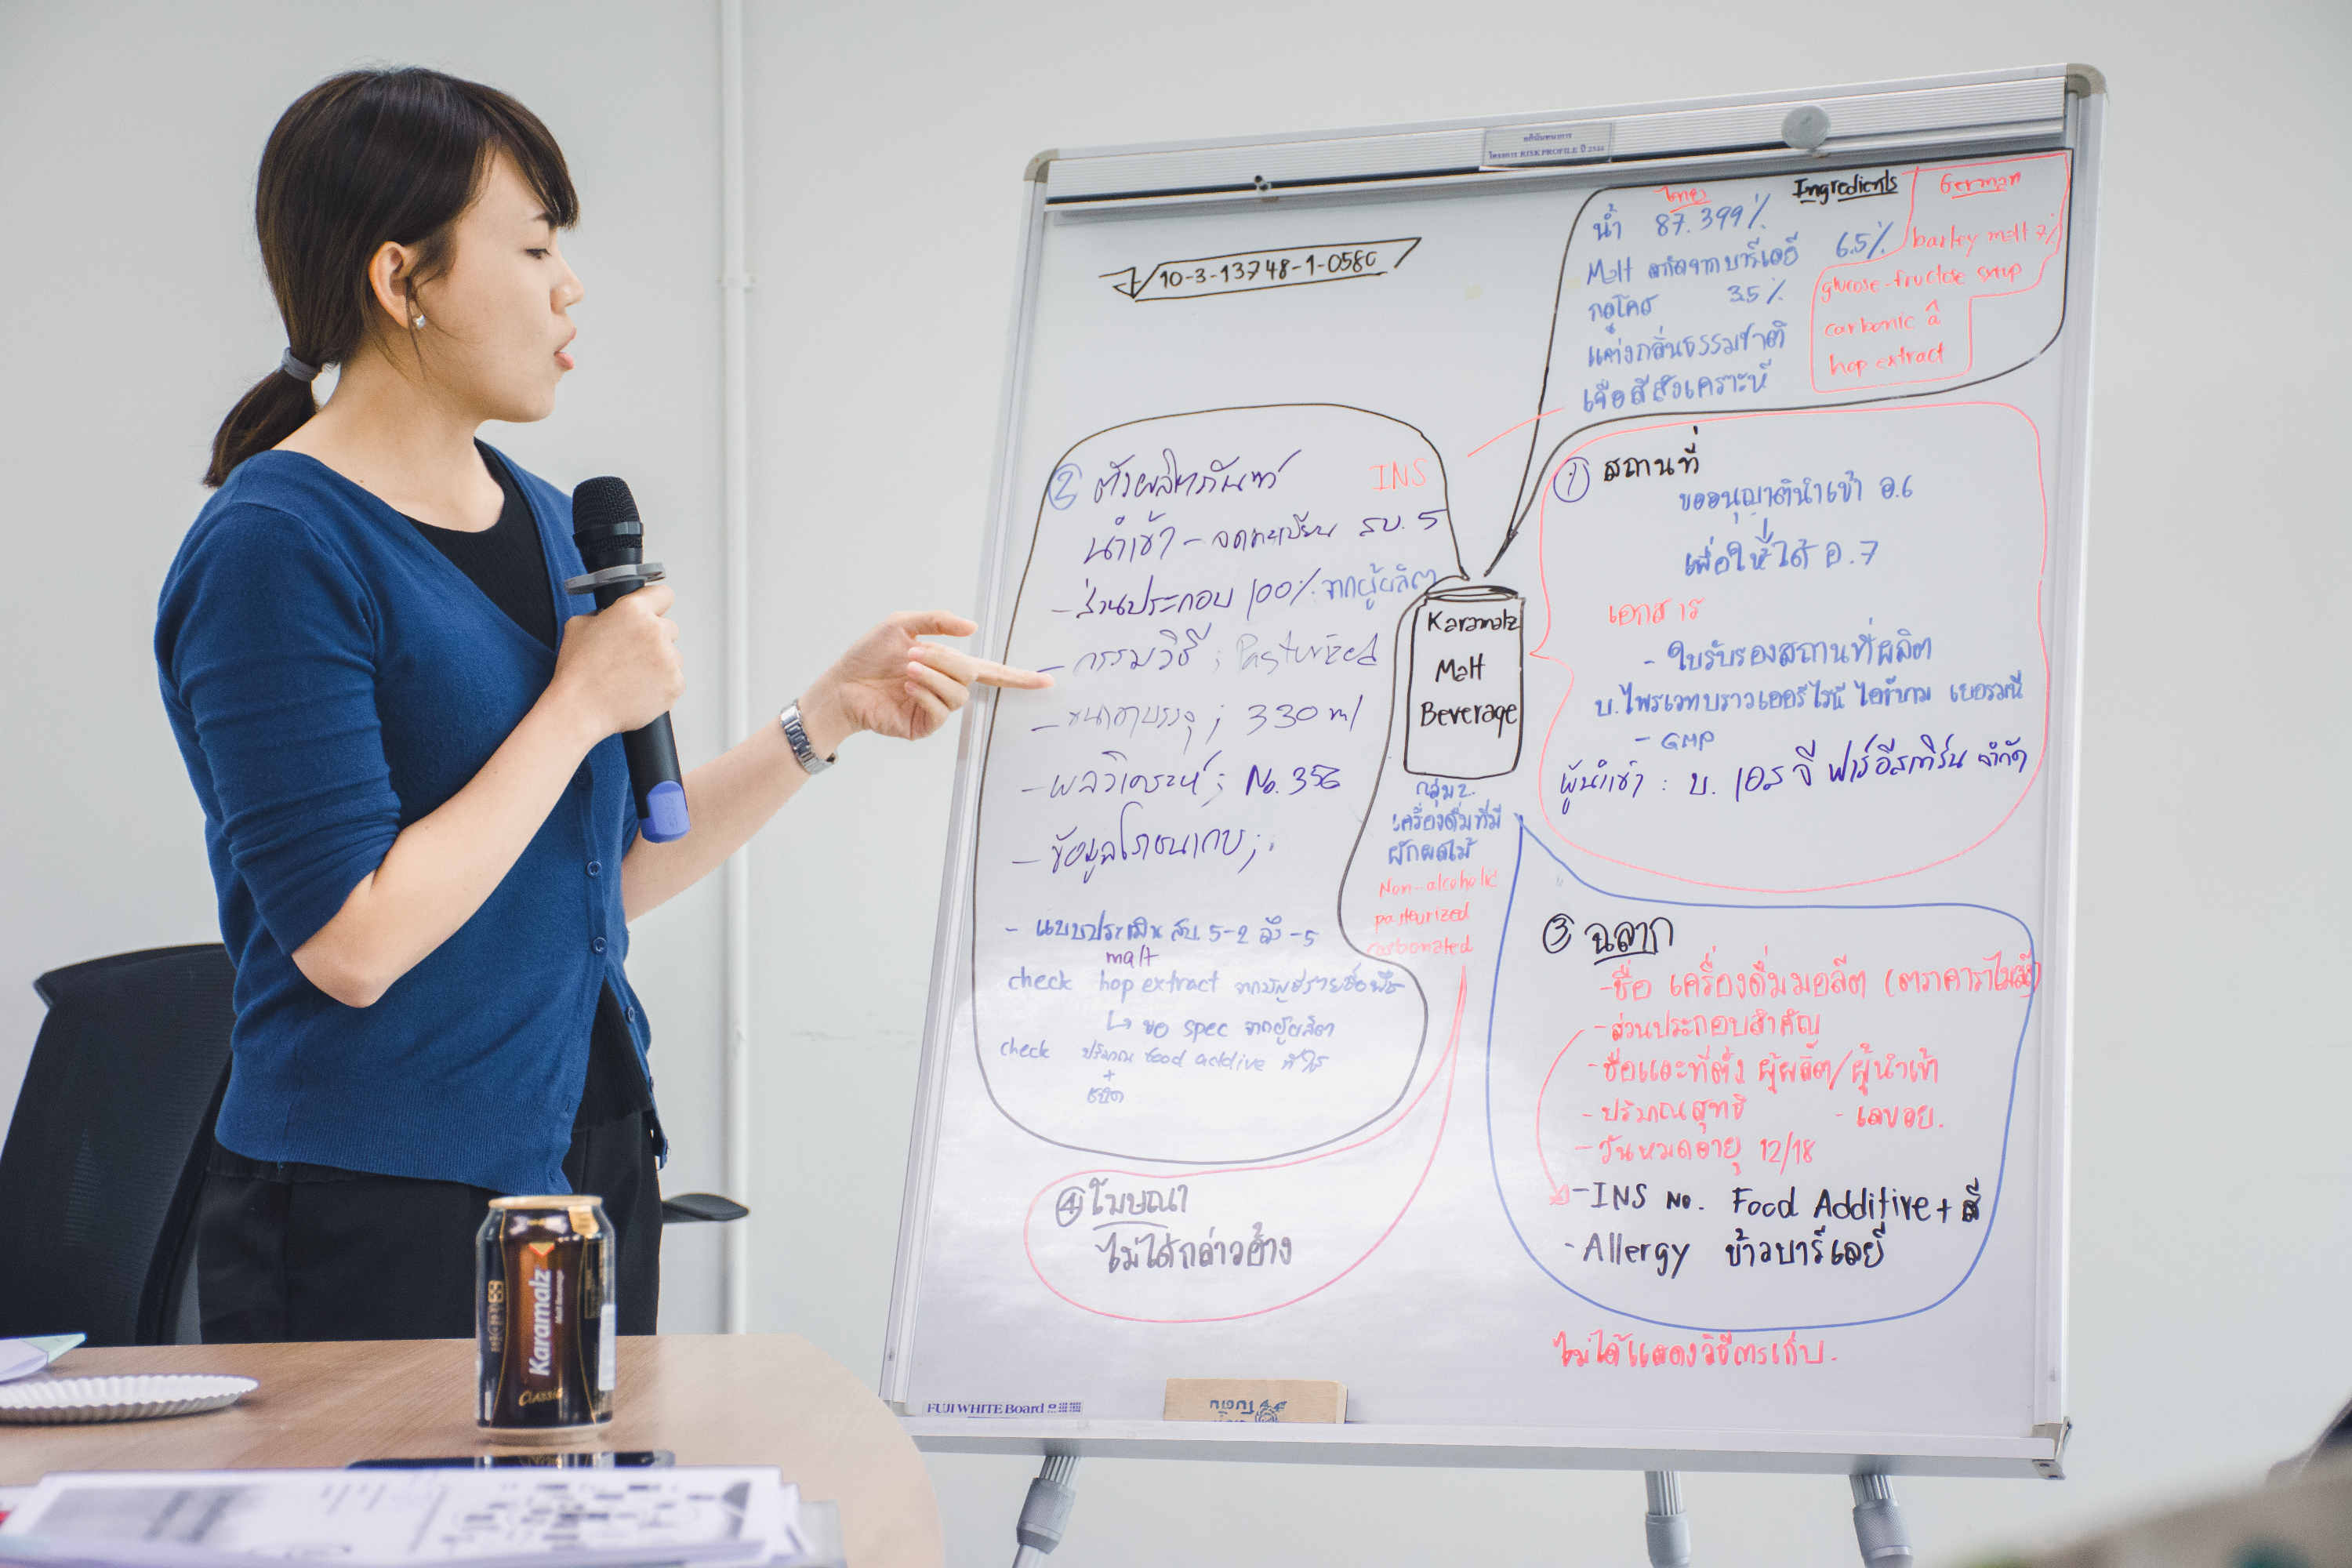 โครงการ RISK PROFILE ปี
10-3-13748-1-058
ไทย
Ingredients
German
น้ำ 87.399%
Malt สกัดจากบาร์เลย์ 6.5%
กลูโคส 3.5%
แต่งกลิ่นธรรมชาติ
เจือสีสังเคราะห์
barley malt 7%
glucose-fructose syrup
carbonic â
hop extract
② ตัวผลิตภัณฑ์
INS
นำเข้า - จดทะเบียน สบ. 5
- ส่วนประกอบ 100% จากผู้ผลิต
- กรรมวิธี ; Pasturized
- ขนาดบรรจุ ; 330 ml
- ผลวิเคราะห์ ; No. 356
- ข้อมูลโภชนาการ ;
- แบบประเมิน สบ. 5-2 ถึง -5
malt
check hop extract
↳ ขอ spec จากผู้ผลิต
check ปริมาณ food addive ที่ใช้
+
ชนิด
Karamalz
Malt
Beverage
กลุ่ม 2.
เครื่องดื่มที่มี
ผักผลไม้
Non-alcoholic
pasteurized
carbonated
① สถานที่
ขออนุญาตินำเข้า อ.6
เพื่อให้ได้ อ.7
เอกสาร
- ใบรับรองสถานที่ผลิต
บ. ไพรเวทบราวเออรี่ ไอช์บาม เยอรมนี
- GMP
ผู้นำเข้า : บ. เอส จี ฟาร์อีสเทิร์น จำกัด
③ ฉลาก
- ชื่อ เครื่องดื่มมอลต์
- ส่วนประกอบสำคัญ
- ชื่อและที่ตั้ง ผู้ผลิต/ผู้นำเข้า
- ปริมาณสุทธิ - เลขอย.
- วันหมดอายุ 12/18
- INS No. Food Additive + สี
- Allergy ข้าวบาร์เลย์
④ โฆษณา
ไม่ได้กล่าวอ้าง
ไม่ได้แสดงวิธีการเก็บ.
FUJI WHITE Board
Karamalz
Malt Beverage
CLASSIC